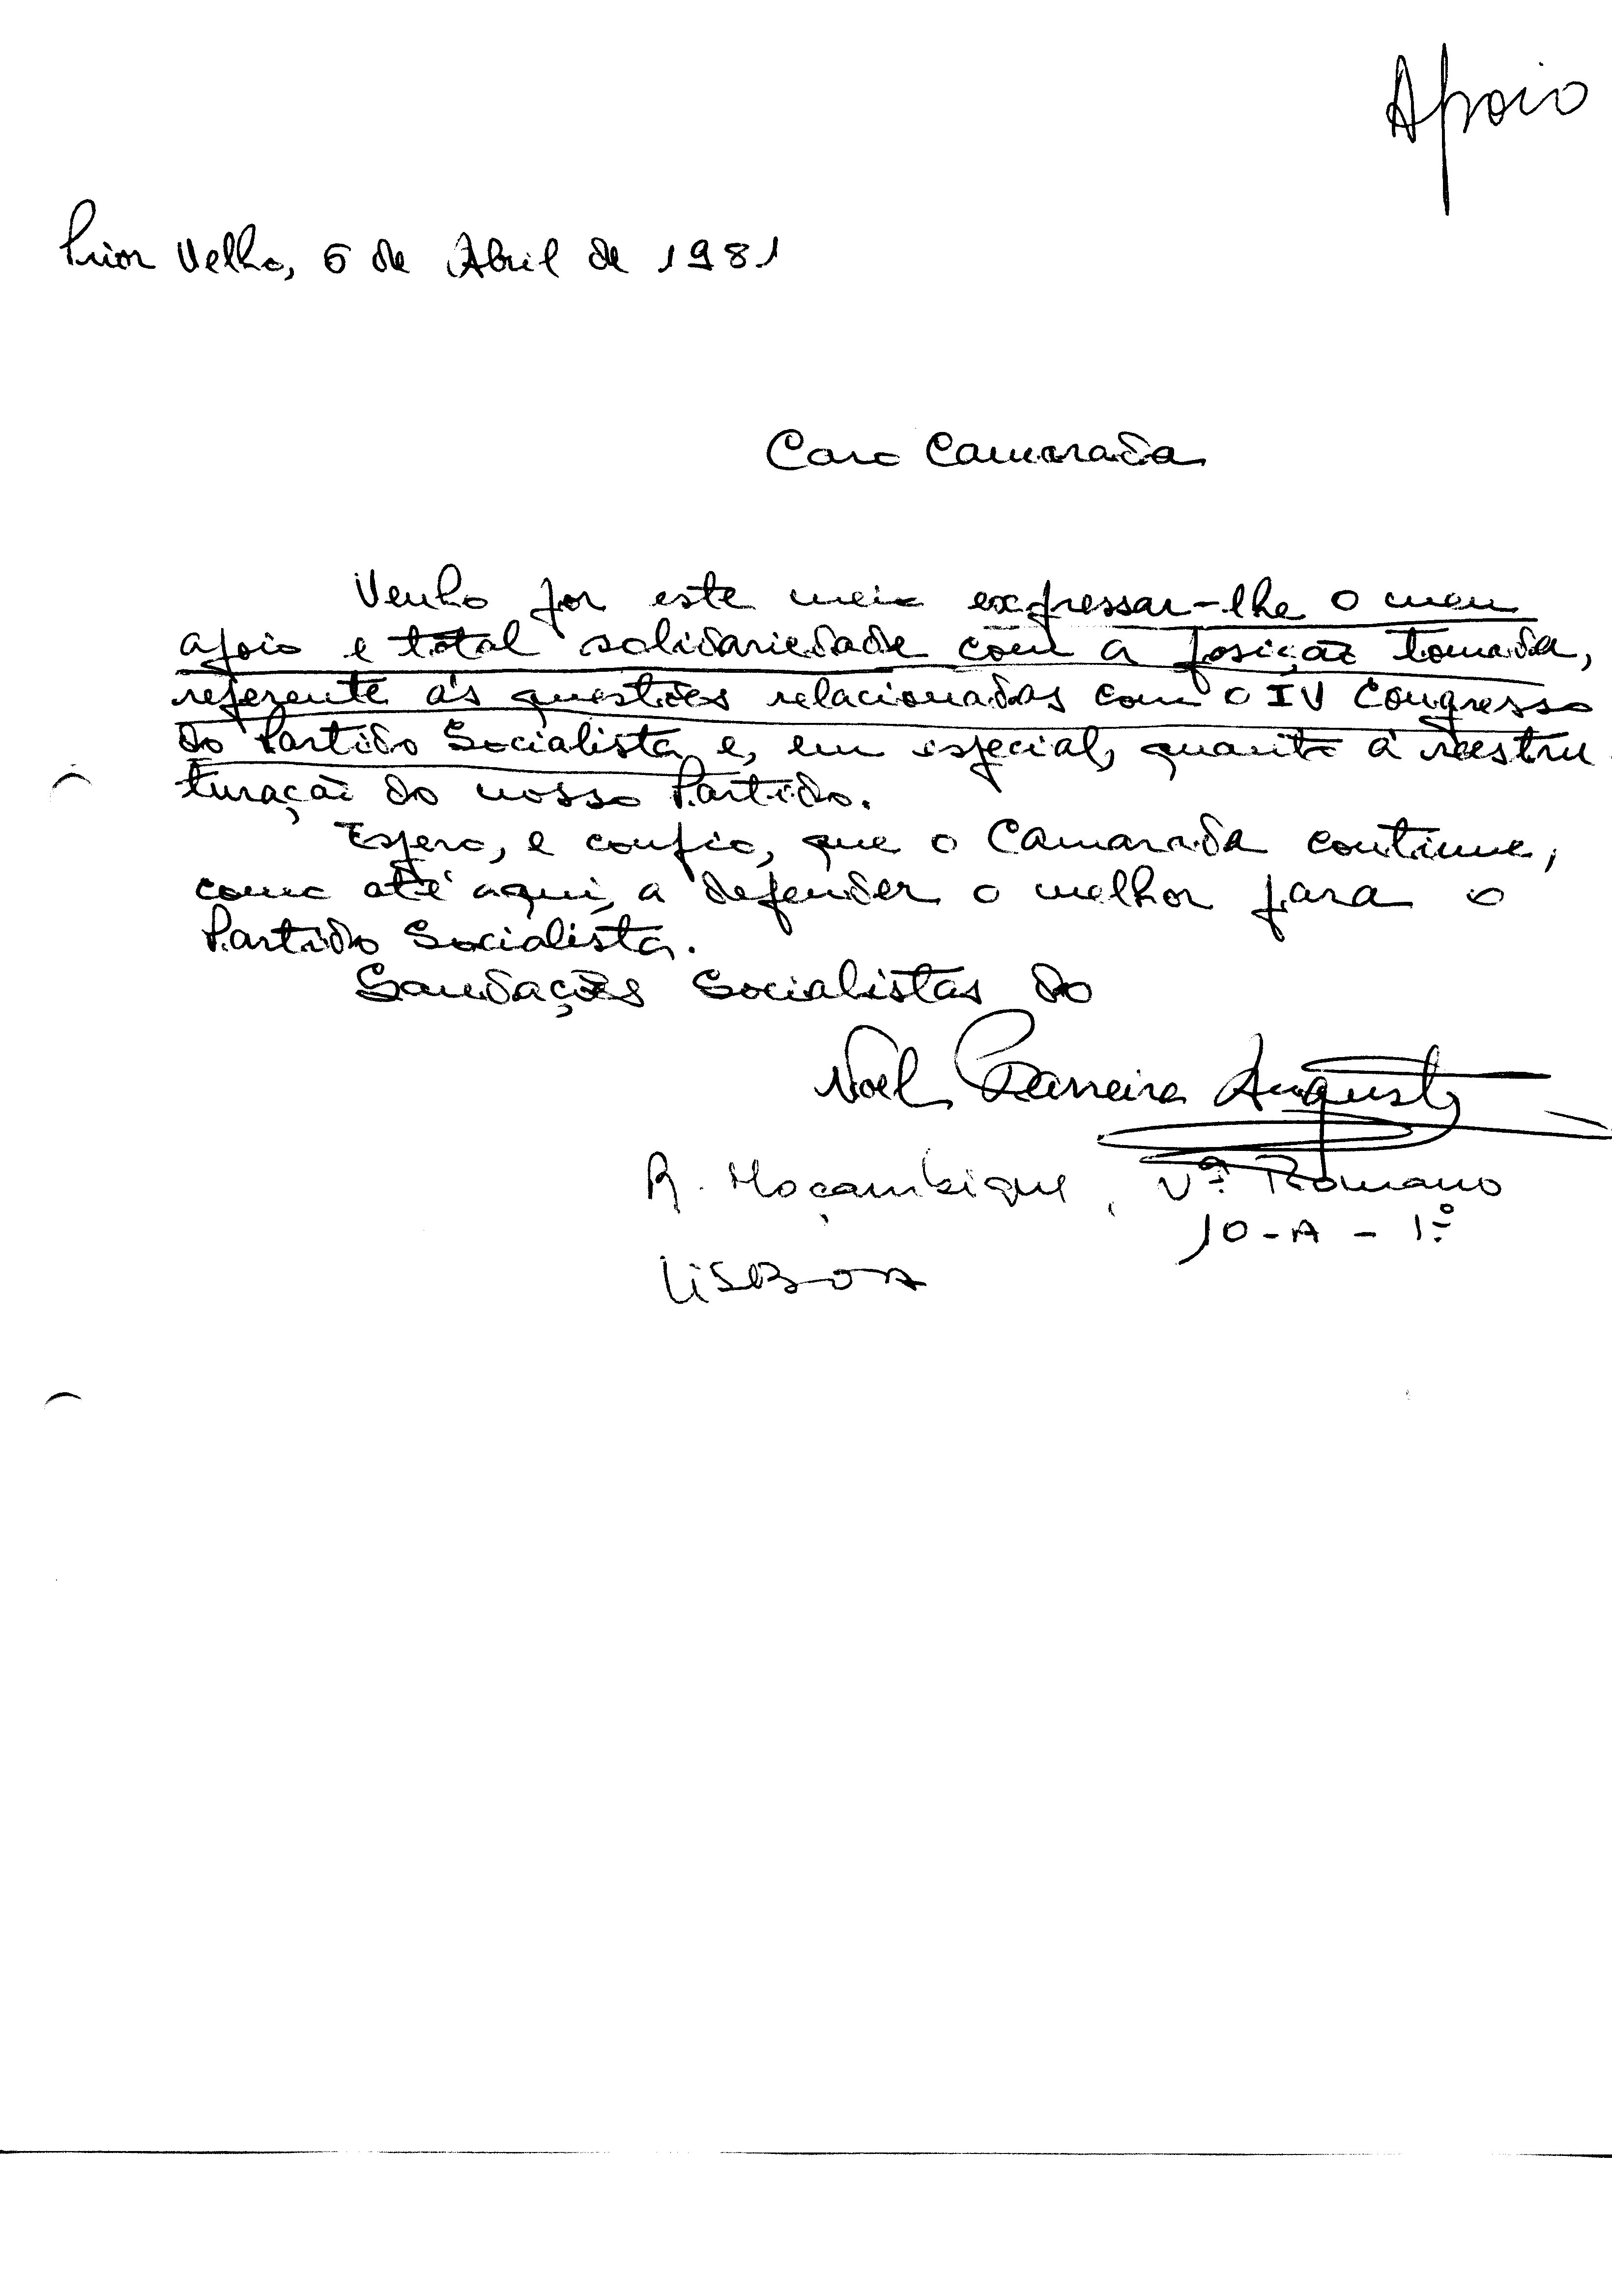 Apoio
Prior Velho, 6 de Abril de 1981
Caro Camarada
Venho por este meio expressar-lhe o meu
apoio e total solidariedade com a posição tomada,
referente ás questões relacionadas com o IV Congresso
do Partido Socialista e, em especial, quanto á reestru
turação do nosso Partido.
Espero, e confio, que o Camarada continue,
como até aqui, a defender o melhor para o
Partido Socialista.
Saudações Socialistas do
Noel Ferreira Augusto
R. Moçambique, Vª Romano
10-A - 1º
LISBOA